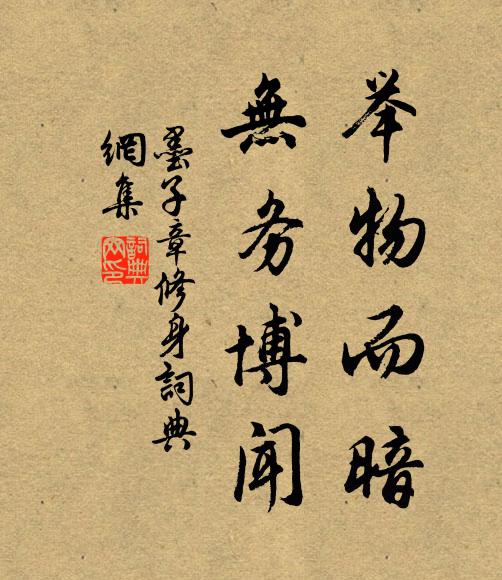 举物而暗
無务博闻
墨子章修身詞典
網集
詞典网印